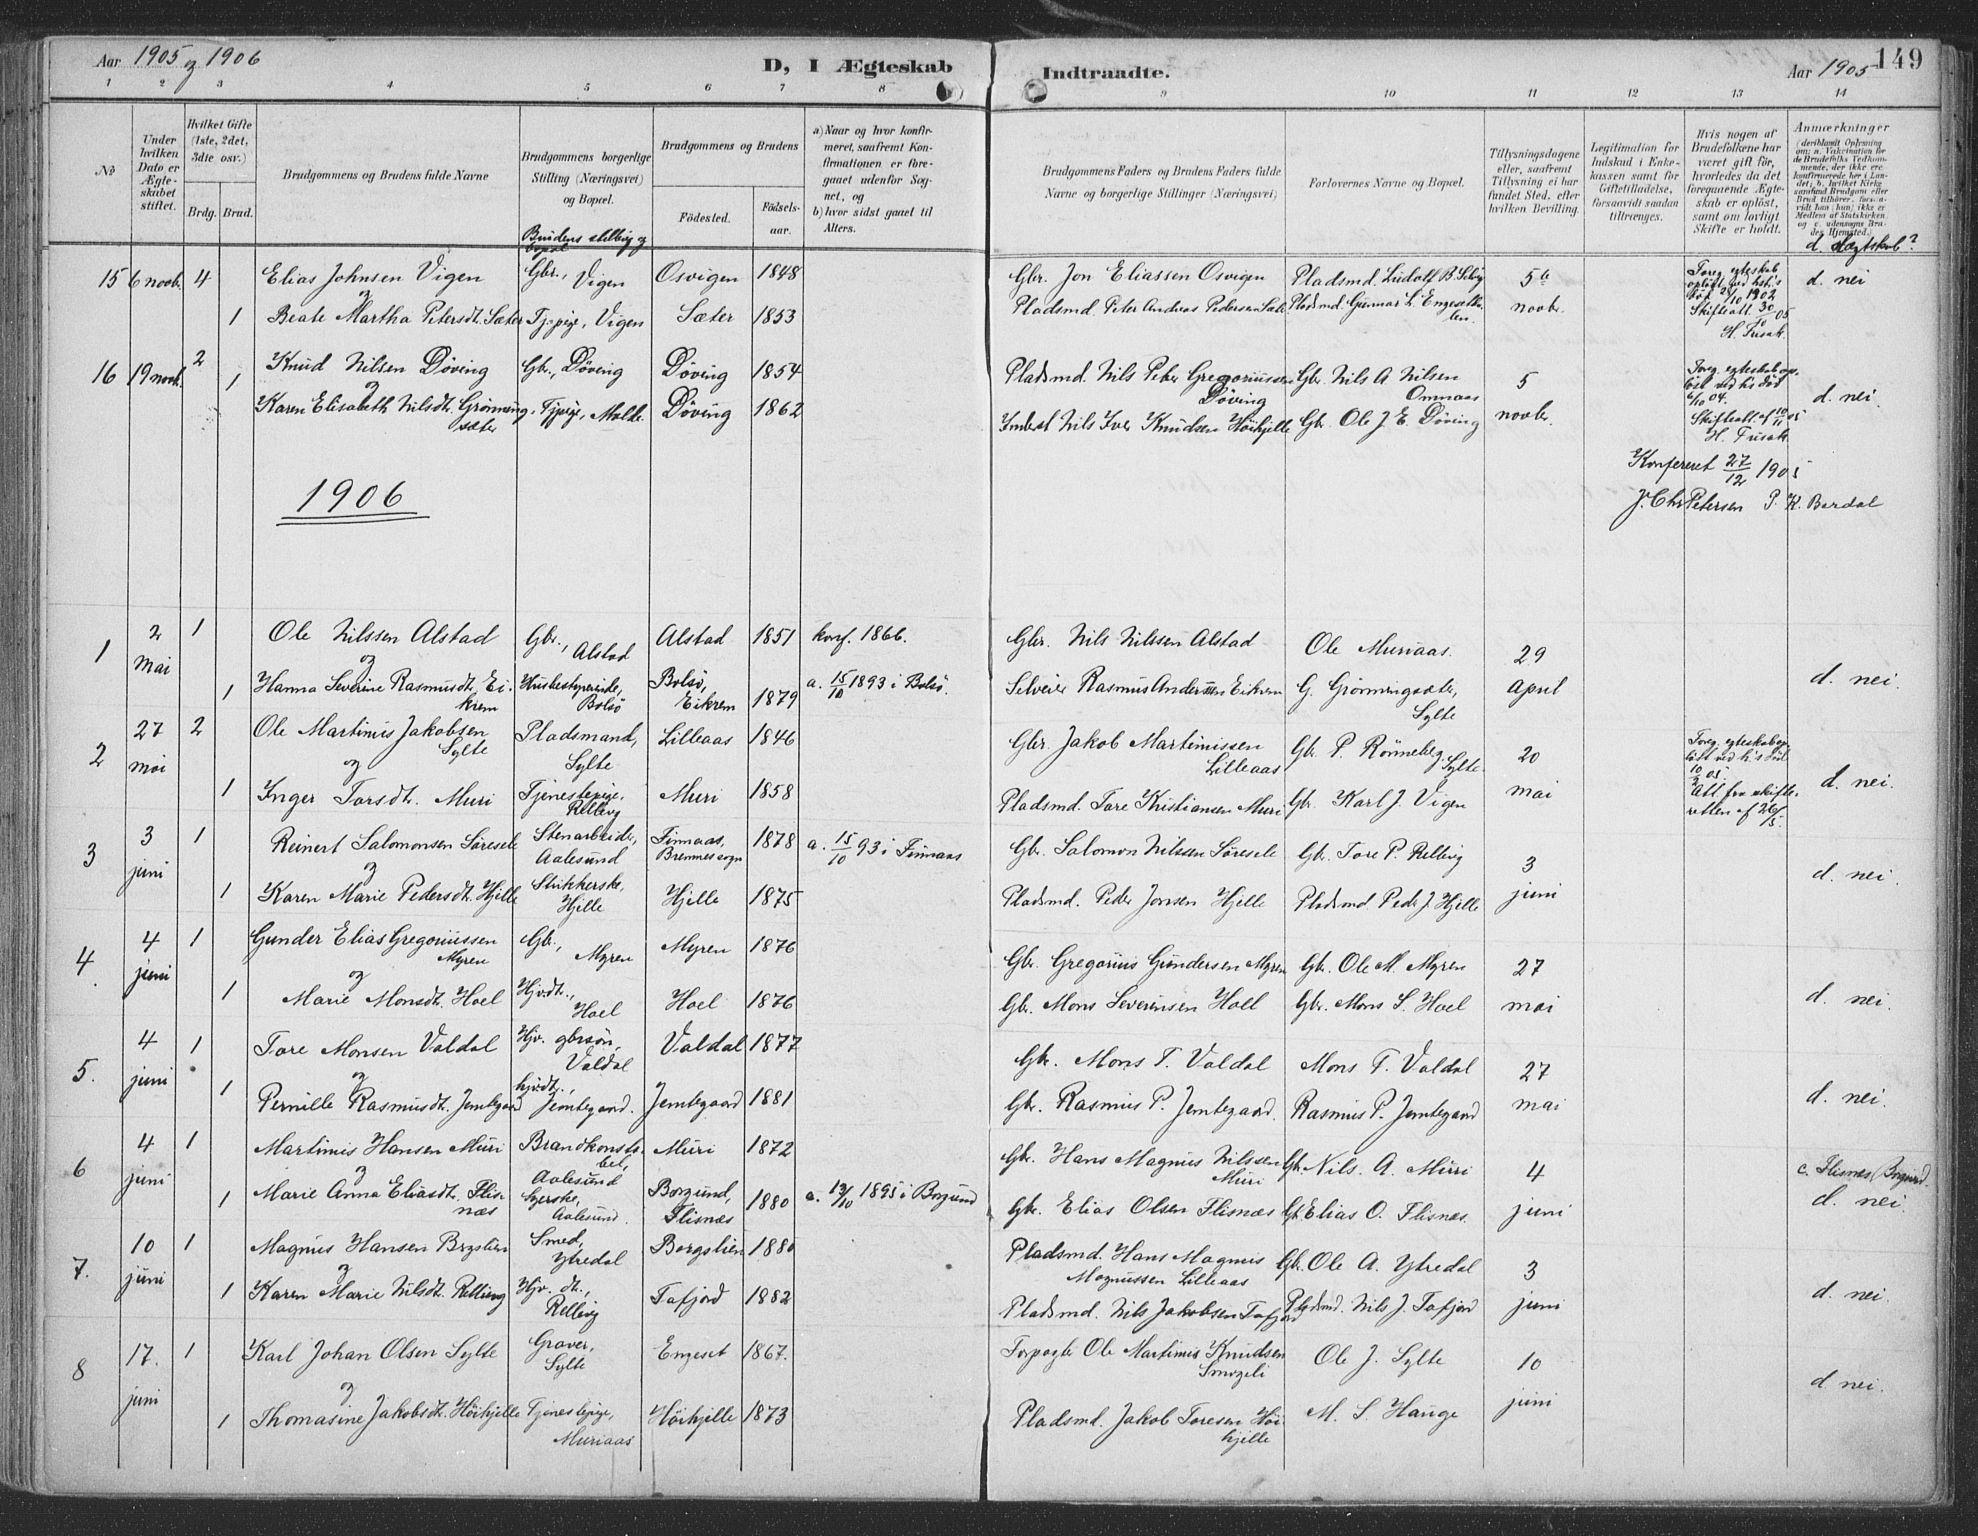 Aar 1905 og 1906
D, I Ægteskab Indtraadte.
Aar 1905
149
1 2 3 4 5 6 7 8 9 10 11 12 13 14
No
Under hvilken Dato er Ægteskabet stiftet.
Hvilket Gifte (1ste, 2det, 3die osv.)
Brdg. Brud.
Brudgommens og Brudens fulde Navne
Brudgommens borgerlige Stilling (Næringsvei) og Bopæl.
Brudens stilling og bopæl
Brudgommens og Brudens
Fødested.
Fødselsaar.
a) Naar og hvor konfirmeret, saafremt Konfirmationen er foregaaet udenfor Sognet, og
b) hvor sidst gaaet til Alters.
Brudgommens Faders og Brudens Faders fulde Navne og borgerlige Stillinger (Næringsvei)
Forlovernes Navne og Bopæl.
Tillysningsdagene eller, saafremt Tillysning ei har fundet Sted, efter hvilken Bevilling.
Legitimation for Indskud i Enkekassen samt for Giftetilladelse, forsaavidt saadan tiltrænges.
Hvis nogen af Brudefolkene har været gift før, hvorledes da det foregaaende Ægteskab er opløst, samt om lovligt Skifte er holdt.
Anmærkninger
d. slægtskab?
15 6 novb. 4 Elias Johnsen Vigen Gbr., Vigen Osvigen 1848 Gbr. Jon Eliassen Osvigen Pladsmd. Ludolf B. Selvig 5te Foreg. egteskab opløst ved hst's død 29/10 1902 d. nei
og
1 Beate Martha Petersdt. Sæter Tjpige, Vigen Sæter 1853 Pladsmd. Peter Andreas Pedersen Sæter Pladsmd. Gunnar L. Engesetbakken novbr. Skifteatt. 30/10 05 H. Frisak
16 19 novb. 2 Knud Nilsen Døving Gbr., Døving Døving 1854 Pladsmd. Nils Peter Gregoriussen Døving Gbr. Nils A. Nilsen Omnaas 5 Foreg. egteskab opløst ved hs død 6/10 04.
og
1 Karen Elisabeth Nilsdt. Grønningsæter Tjpige, Molde. Døving 1862 Inderst Nils Iver Knudsen Høihjelle Gbr. Ole J. E. Døving novbr. Skifteatt. af 10/11 05 H. Frisak d. nei.
Konfereret 27/12 1905
J. Chr Petersen P. K. Bardal
1906
1 2 mai 1 Ole Nilssen Alstad Gbr., Alstad Alstad 1851 konf. 1866. Gbr. Nils Nilssen Alstad Ole Muriaas. 29
og
1 Hanna Severine Rasmusdt. Eikrem Husbestyrerinde, Bolsø Bolsø, Eikrem 1879 a. 15/10 1893 i Bolsø. Selveier Rasmus Anderssen Eikrem G. Grønningsæter, Sylte april d. nei.
2 27 mai 2 Ole Martinus Jakobsen Sylte Pladsmand, Sylte Lilleaas 1846 Gbr. Jakob Martinussen Lilleaas Gbr. P. Rönneberg Sylte. 20 Foreg. egteskab opløst ved h's død 10/3 05.
og
1 Inger Toresdt. Muri Tjenestepige, Relling Muri 1858 Pladsmd. Tore Kristiansen Muri Gbr. Karl J. Vigen mai Att. fra skifteretten af 26/5. d. nei.
3 3 juni 1 Reinert Salomonsen Søresele Stenarbeider, Aalesund Finnaas, Bremnes sogn 1878 a. 15/10 93 i Finnaas Gbr. Salomon Nilssen Søresele Gbr. Tore P. Relling 3
og
1 Karen Marie Pedersdt. Hjelle Strikkerske, Hjelle Hjelle 1875 Pladsmd. Peder Jonsen Hjelle Pladsmd Peder J. Hjelle juni d. nei.
4 4 juni 1 Gunder Elias Gregoriussen Myren Gbr., Myren Myren 1876 Gbr. Gregorius Gundersen Myren Gbr. Ole M. Myren 27
og
1 Marie Monsdt. Hoel Hjvdt., Hoel Hoel 1876 Gbr. Mons Severinsen Hoel Gbr. Mons S. Hoel mai d. nei.
5. 4 juni 1 Tore Monsen Valdal Hjv. gbrsøn, Valdal Valdal 1877 Gbr. Mons T. Valdal Mons T. Valdal 27
og
1 Pernille Rasmusdt. Jemtegaard hjvdt., Jemtegaard. Jemtegaard 1881 Gbr. Rasmus P. Jemtegaard. Rasmus P. Jemtegaard mai d. nei.
6 4 juni 1 Martinus Hansen Muri Brandkonstabel, Aalesund Muri 1872 Gbr. Hans Magnus Nilssen Muri Gbr. Nils. A. Muri 4 c. Flisnæs, Borgund.
og
1 Marie Anna Eliasdt. Flisnæs Syerske, Aalesund. Borgund, Flisnæs 1880 a. 13/10 1895 i Borgund Gbr. Elias Olsen Flisnæs Gbr. Elias O. Flisnæs. juni d. nei.
7. 10 juni 1 Magnus Hansen Borgslien Smed, Ytredal Borgslien 1880 Pladsmd. Hans Magnus Magnussen Lilleaas Gbr. Ole A. Ytredal 3
og
1 Karen Marie Nilsdt. Relling Hjv. dt., Relling Tafjord 1882 Pladsmd. Nils Jakobsen Tafjord Pladsmd. Nils J. Tafjord juni d. nei.
8 17. juni 1 Karl Johan Olsen Sylte Graver, Sylte Engeset 1867. Forpagter Ole Martinus Knudsen Smogeli Ole J. Sylte 10
og
1 Thomasine Jakobsdt. Høihjelle Tjenestepige, Muriaas Høihjelle 1873 Pladsmd. Jakob Toresen Høihjelle M. S. Hauge juni d nei.